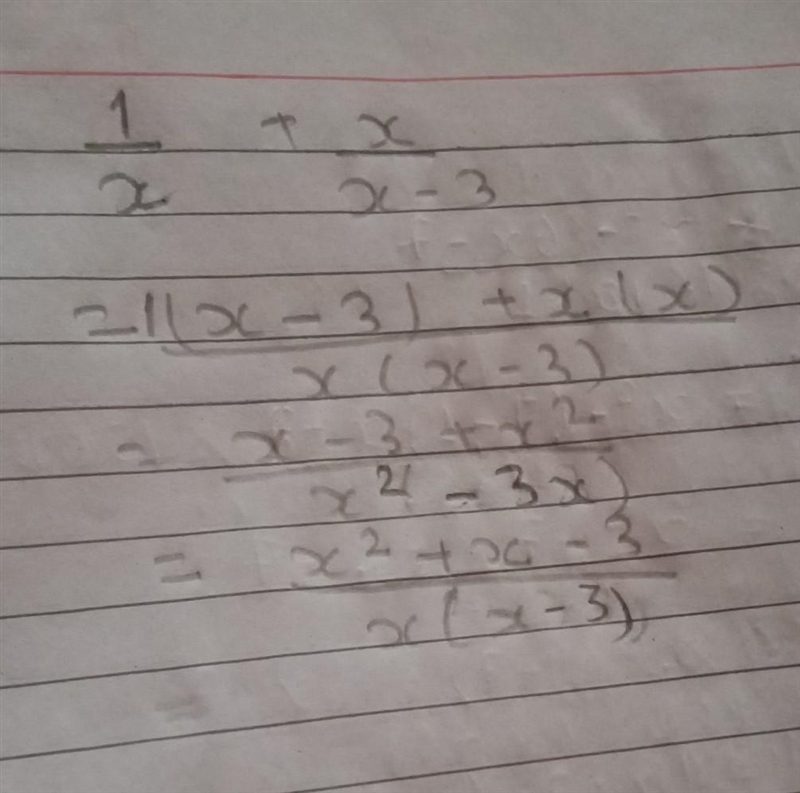 1/x + x/x - 3
= 1(x - 3) + x(x) / x(x - 3)
= x - 3 + x² / x² - 3x)
= x² + x - 3 / x(x - 3)
=